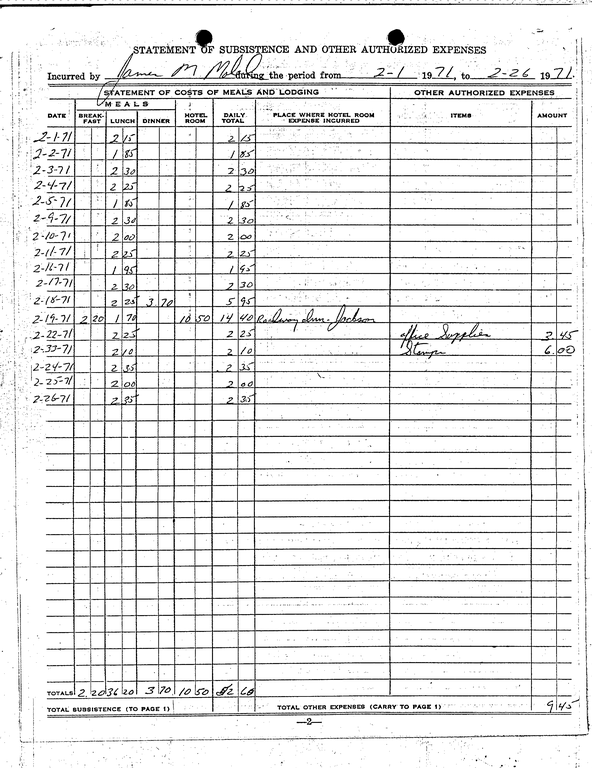 STATEMENT OF SUBSISTENCE AND OTHER AUTHORIZED EXPENSES
Incurred by James M during the period from 2-1 1971, to 2-26 1971.
STATEMENT OF COSTS OF MEALS AND LODGING OTHER AUTHORIZED EXPENSES
MEALS
DATE BREAK-FAST LUNCH DINNER HOTEL ROOM DAILY TOTAL PLACE WHERE HOTEL ROOM EXPENSE INCURRED ITEMS AMOUNT
2-1-71 2 15 2 15
2-2-71 1 85 1 85
2-3-71 2 30 2 30
2-4-71 2 25 2 25
2-5-71 1 85 1 85
2-9-71 2 30 2 30
2-10-71 2 00 2 00
2-11-71 2 25 2 25
2-16-71 1 95 1 95
2-17-71 2 30 2 30
2-18-71 2 25 3 70 5 95
2-19-71 2 20 1 70 10 50 14 40 Inn - Jackson
2-22-71 2 25 2 25 office Supplies 3.45
2-33-71 2 10 2 10 Stamps 6.00
2-24-71 2 35 2 35
2-25-71 2 00 2 00
2-26-71 2 35 2 35
TOTALS 2 20 36 20 3 70 10 50 52 60
TOTAL SUBSISTENCE (TO PAGE 1) TOTAL OTHER EXPENSES (CARRY TO PAGE 1) 9 45
—2—